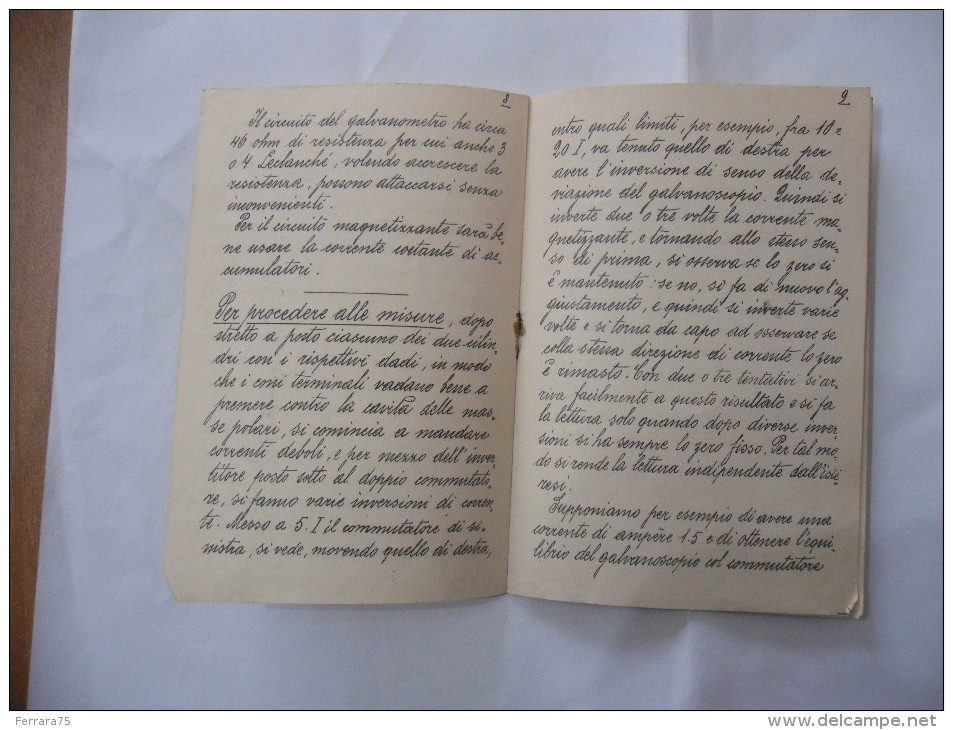 8
Il circuito del galvanometro ha circa
46 ohm di resistenza per cui anche 3
o 4 Leclanché, volendo accrescere la
resistenza, possono attaccarsi senza
inconvenienti.
Per il circuito magnetizzante sarà be-
ne usare la corrente costante di ac-
cumulatori.
Per procedere alle misure, dopo
stretto a posto ciascuno dei due cilin-
dri con i rispettivi dadi, in modo
che i coni terminali vadano bene a
premere contro la cavità delle mas-
se polari, si comincia a mandare
correnti deboli, e per mezzo dell'inver-
titore posto sotto al doppio commutato-
re, si fanno varie inversioni di corren-
te. Messo a 5. I il commutatore di si-
nistra, si vede, movendo quello di destra,
9
entro quali limiti, per esempio, fra 10 e
20 I, va tenuto quello di destra per
avere l'inversione di senso della de-
viazione del galvanoscopio. Quindi si
inverte due o tre volte la corrente ma-
gnetizzante, e tornando allo stesso sen-
so di prima, si osserva se lo zero si
è mantenuto: se no, si fa di nuovo l'ag-
giustamento, e quindi si inverte varie
volte e si torna da capo ad osservare se
colla stessa direzione di corrente lo zero
è rimasto. Con due o tre tentativi si ar-
riva facilmente a questo risultato e si fa
la lettura solo quando dopo diverse inver-
sioni si ha sempre lo zero fisso. Per tal mo-
do si rende la lettura indipendente dall'iste-
resi.
Supponiamo per esempio di avere una
corrente di ampère 1.5 e di ottenere l'equi-
librio del galvanoscopio col commutatore
Ferrara75
www.delcampe.net